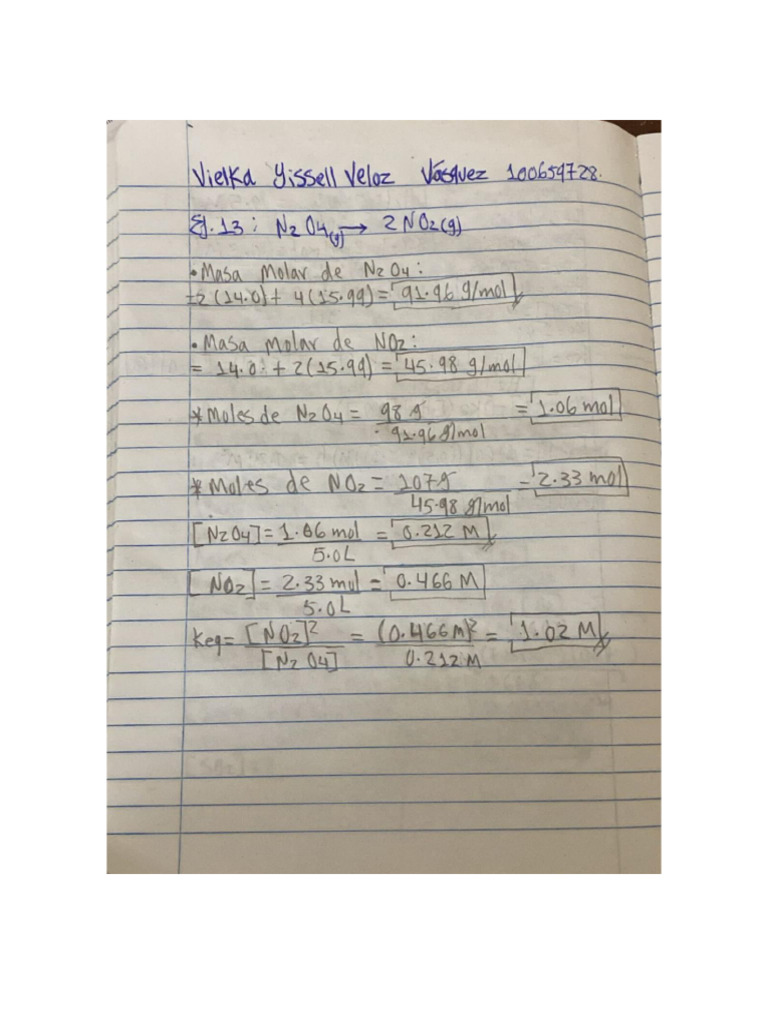 Vielka Yissell Veloz Vásquez 100659728.
Ej. 13: N2O4(g) → 2 NO2(g)
• Masa Molar de N2O4:
=2(14.0)+ 4(15.99)= 91.96 g/mol
• Masa Molar de NO2:
= 14.01 + 2(15.99) = 45.98 g/mol
* Moles de N2O4 = 98 g / 91.96 g/mol = 1.06 mol
* Moles de NO2 = 107 g / 45.98 g/mol = 2.33 mol
[N2O4] = 1.06 mol / 5.0L = 0.212 M
[NO2] = 2.33 mol / 5.0L = 0.466 M
Keq = [NO2]² / [N2O4] = (0.466 M)² / 0.212 M = 1.02 M